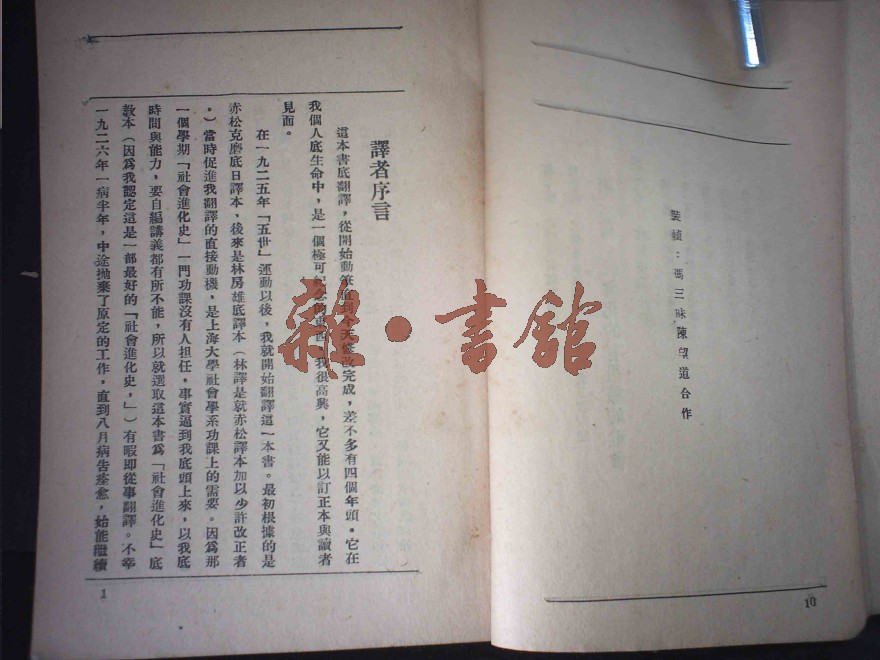 裝楨：馮三昧陳望道合作
10
譯者序言
這本書底翻譯，從開始動筆直到今天修改完成，差不多有四個年頭。它在
我個人底生命中，是一個極可紀念的 我很高興，它又能以訂正本與讀者
見面。
在一九二五年「五卅」運動以後，我就開始翻譯這一本書。最初根據的是
赤松克麿底日譯本，後來是林房雄底譯本（林譯是就赤松譯本加以少許改正者
。）當時促進我翻譯的直接動機，是上海大學社會學系功課上的需要。因爲那
一個學期「社會進化史」一門功課沒有人担任，事實逼到我底頭上來，以我底
時間與能力，要自編講義都有所不能，所以就選取這本書爲「社會進化史」底
教本（因爲我認定這是一部最好的「社會進化史，」）有暇即從事翻譯。不幸
一九二六年一病半年，中途拋棄了原定的工作，直到八月病告痊愈，始能繼續
1
雜·書館